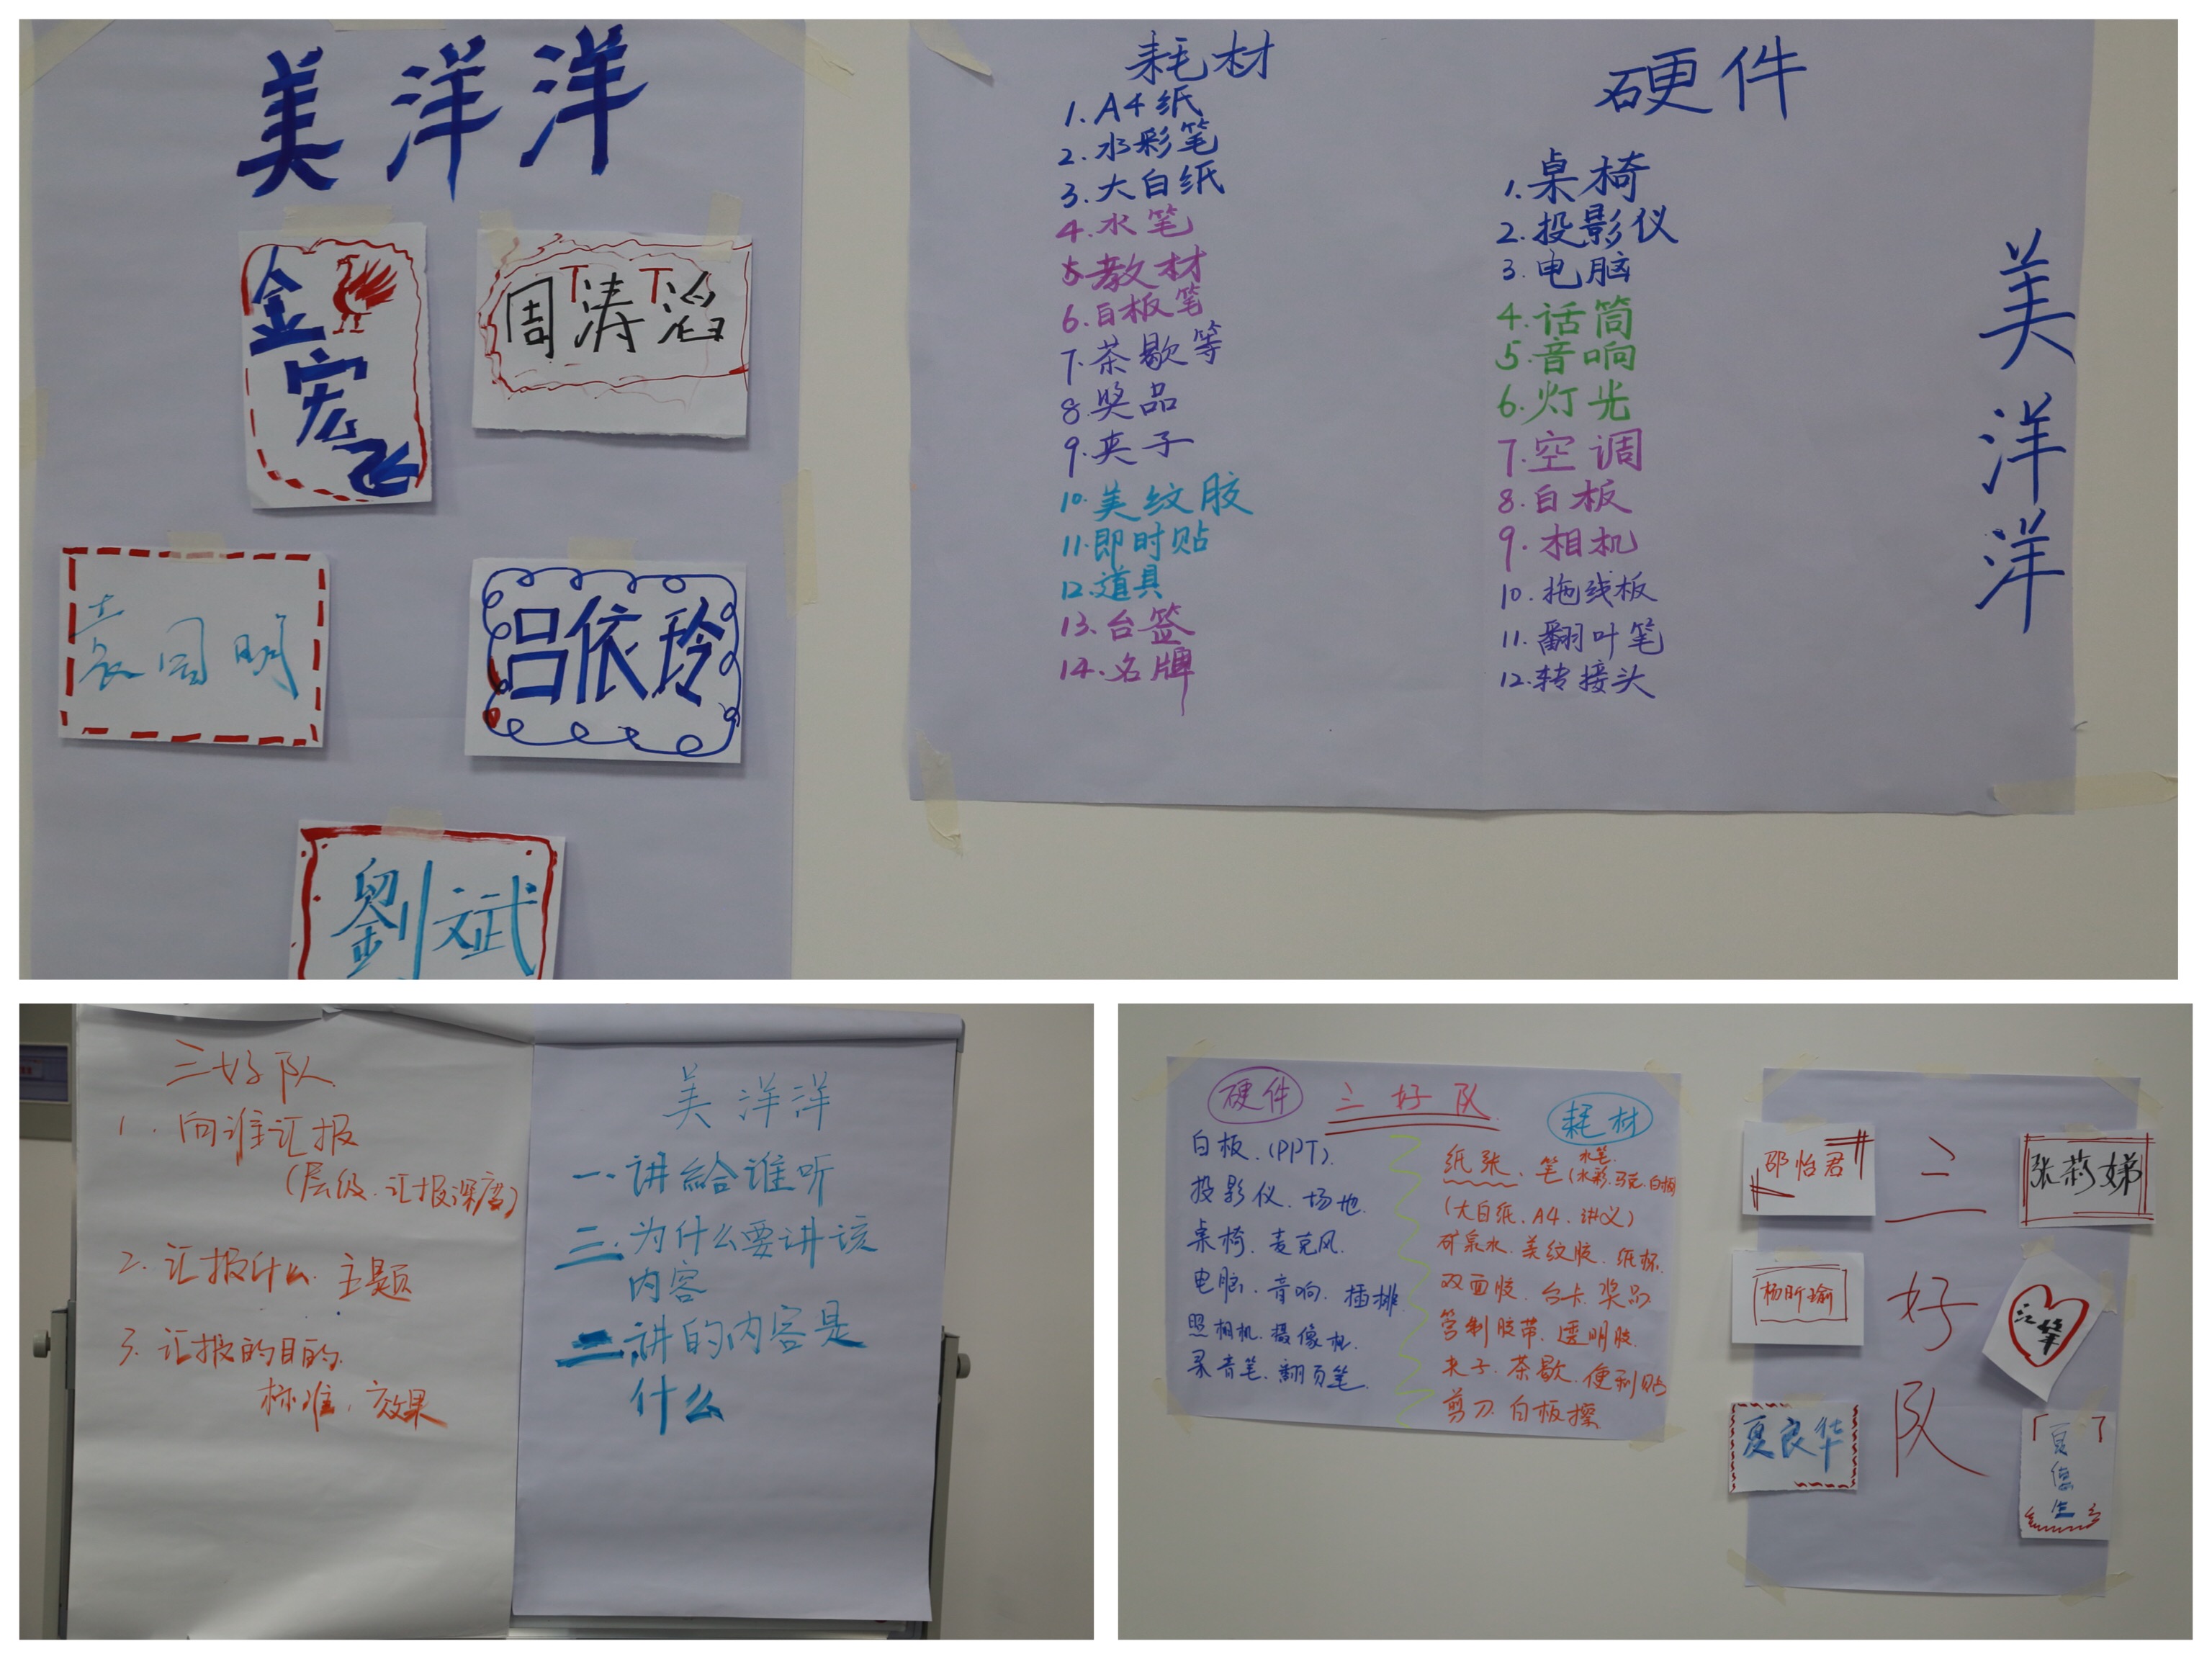 美洋洋
金宏飞
周涛滔
袁国明
吕依玲
劉斌
耗材
1. A4纸
2. 水彩笔
3. 大白纸
4. 水笔
5. 教材
6. 白板笔
7. 茶歇等
8. 奖品
9. 夹子
10. 美纹胶
11. 即时贴
12. 道具
13. 台签
14. 名牌
硬件
1. 桌椅
2. 投影仪
3. 电脑
4. 话筒
5. 音响
6. 灯光
7. 空调
8. 白板
9. 相机
10. 拖线板
11. 翻叶笔
12. 转接头
美洋洋
三好队
1. 向谁汇报
(层级、汇报深度)
2. 汇报什么、主题
3. 汇报的目的.
标准、效果
美洋洋
一. 讲給谁听
三. 为什么要讲该
内容
二. 讲的内容是
什么
三好队
硬件
白板、(PPT).
投影仪、场地.
桌椅、麦克风.
电脑、音响、插排.
照相机、摄像机.
录音笔、翻页笔.
耗材
纸张、笔
水笔.
(大白纸、A4、讲义)
矿泉水、美纹胶、纸杯.
双面胶、台卡、奖品
透明胶
夹子、茶歇、便利贴
剪刀、白板擦
三好队
邵怡君
杨昕瑜
夏良华
张莉娣